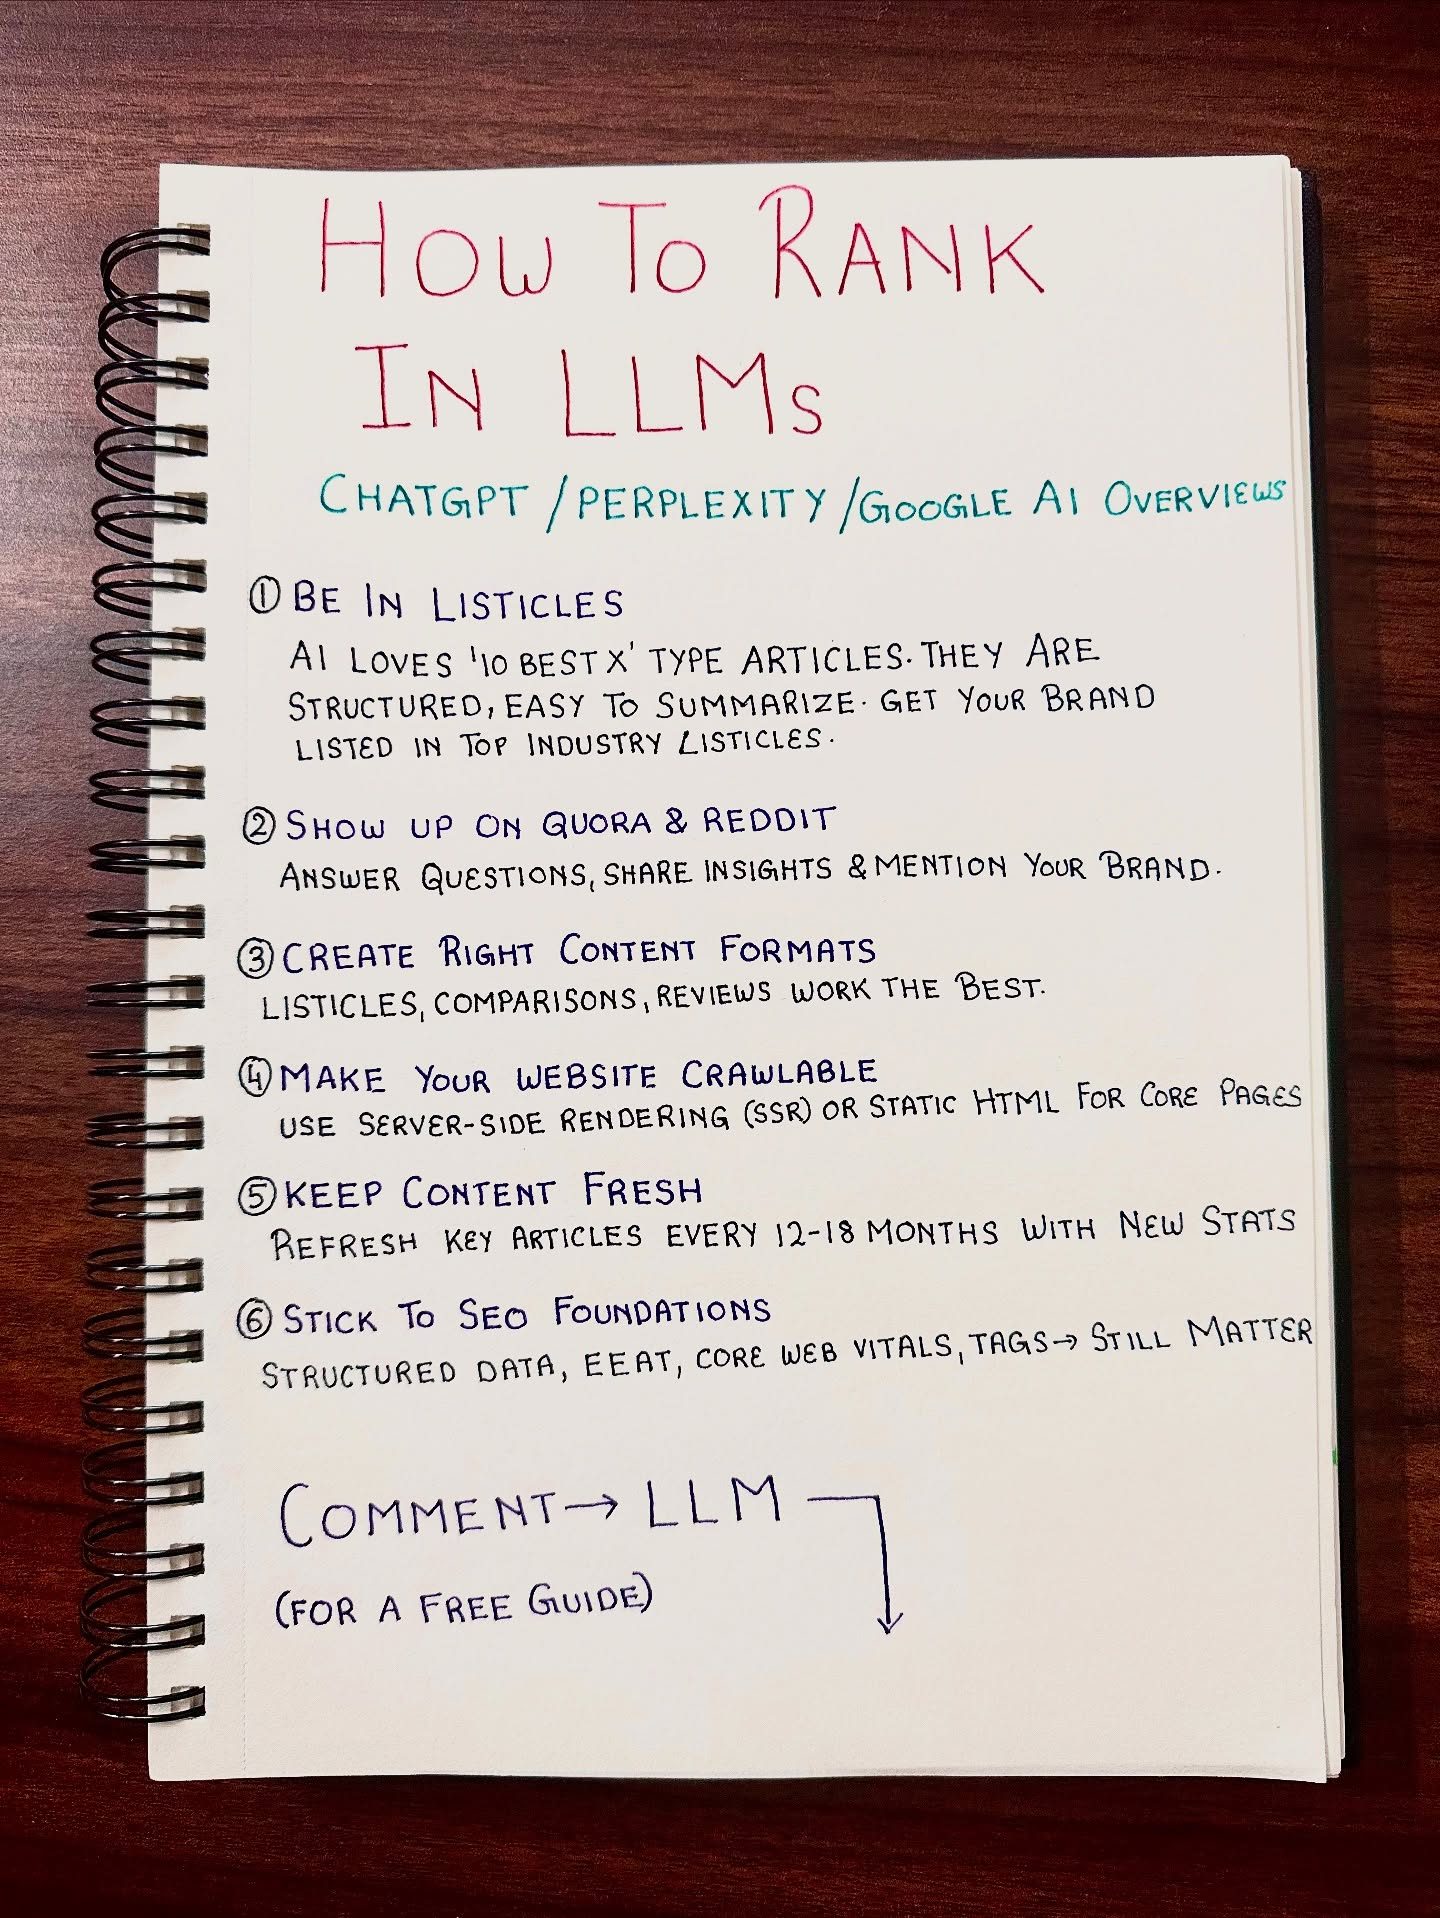 HOW TO RANK
IN LLMs
CHATGPT / PERPLEXITY / GOOGLE AI OVERVIEWS
① BE IN LISTICLES
AI LOVES '10 BEST X' TYPE ARTICLES. THEY ARE
STRUCTURED, EASY TO SUMMARIZE. GET YOUR BRAND
LISTED IN TOP INDUSTRY LISTICLES.
② SHOW UP ON QUORA & REDDIT
ANSWER QUESTIONS, SHARE INSIGHTS & MENTION YOUR BRAND.
③ CREATE RIGHT CONTENT FORMATS
LISTICLES, COMPARISONS, REVIEWS WORK THE BEST.
④ MAKE YOUR WEBSITE CRAWLABLE
USE SERVER-SIDE RENDERING (SSR) OR STATIC HTML FOR CORE PAGES
⑤ KEEP CONTENT FRESH
REFRESH KEY ARTICLES EVERY 12-18 MONTHS WITH NEW STATS
⑥ STICK TO SEO FOUNDATIONS
STRUCTURED DATA, EEAT, CORE WEB VITALS, TAGS → STILL MATTER
COMMENT → LLM
(FOR A FREE GUIDE)